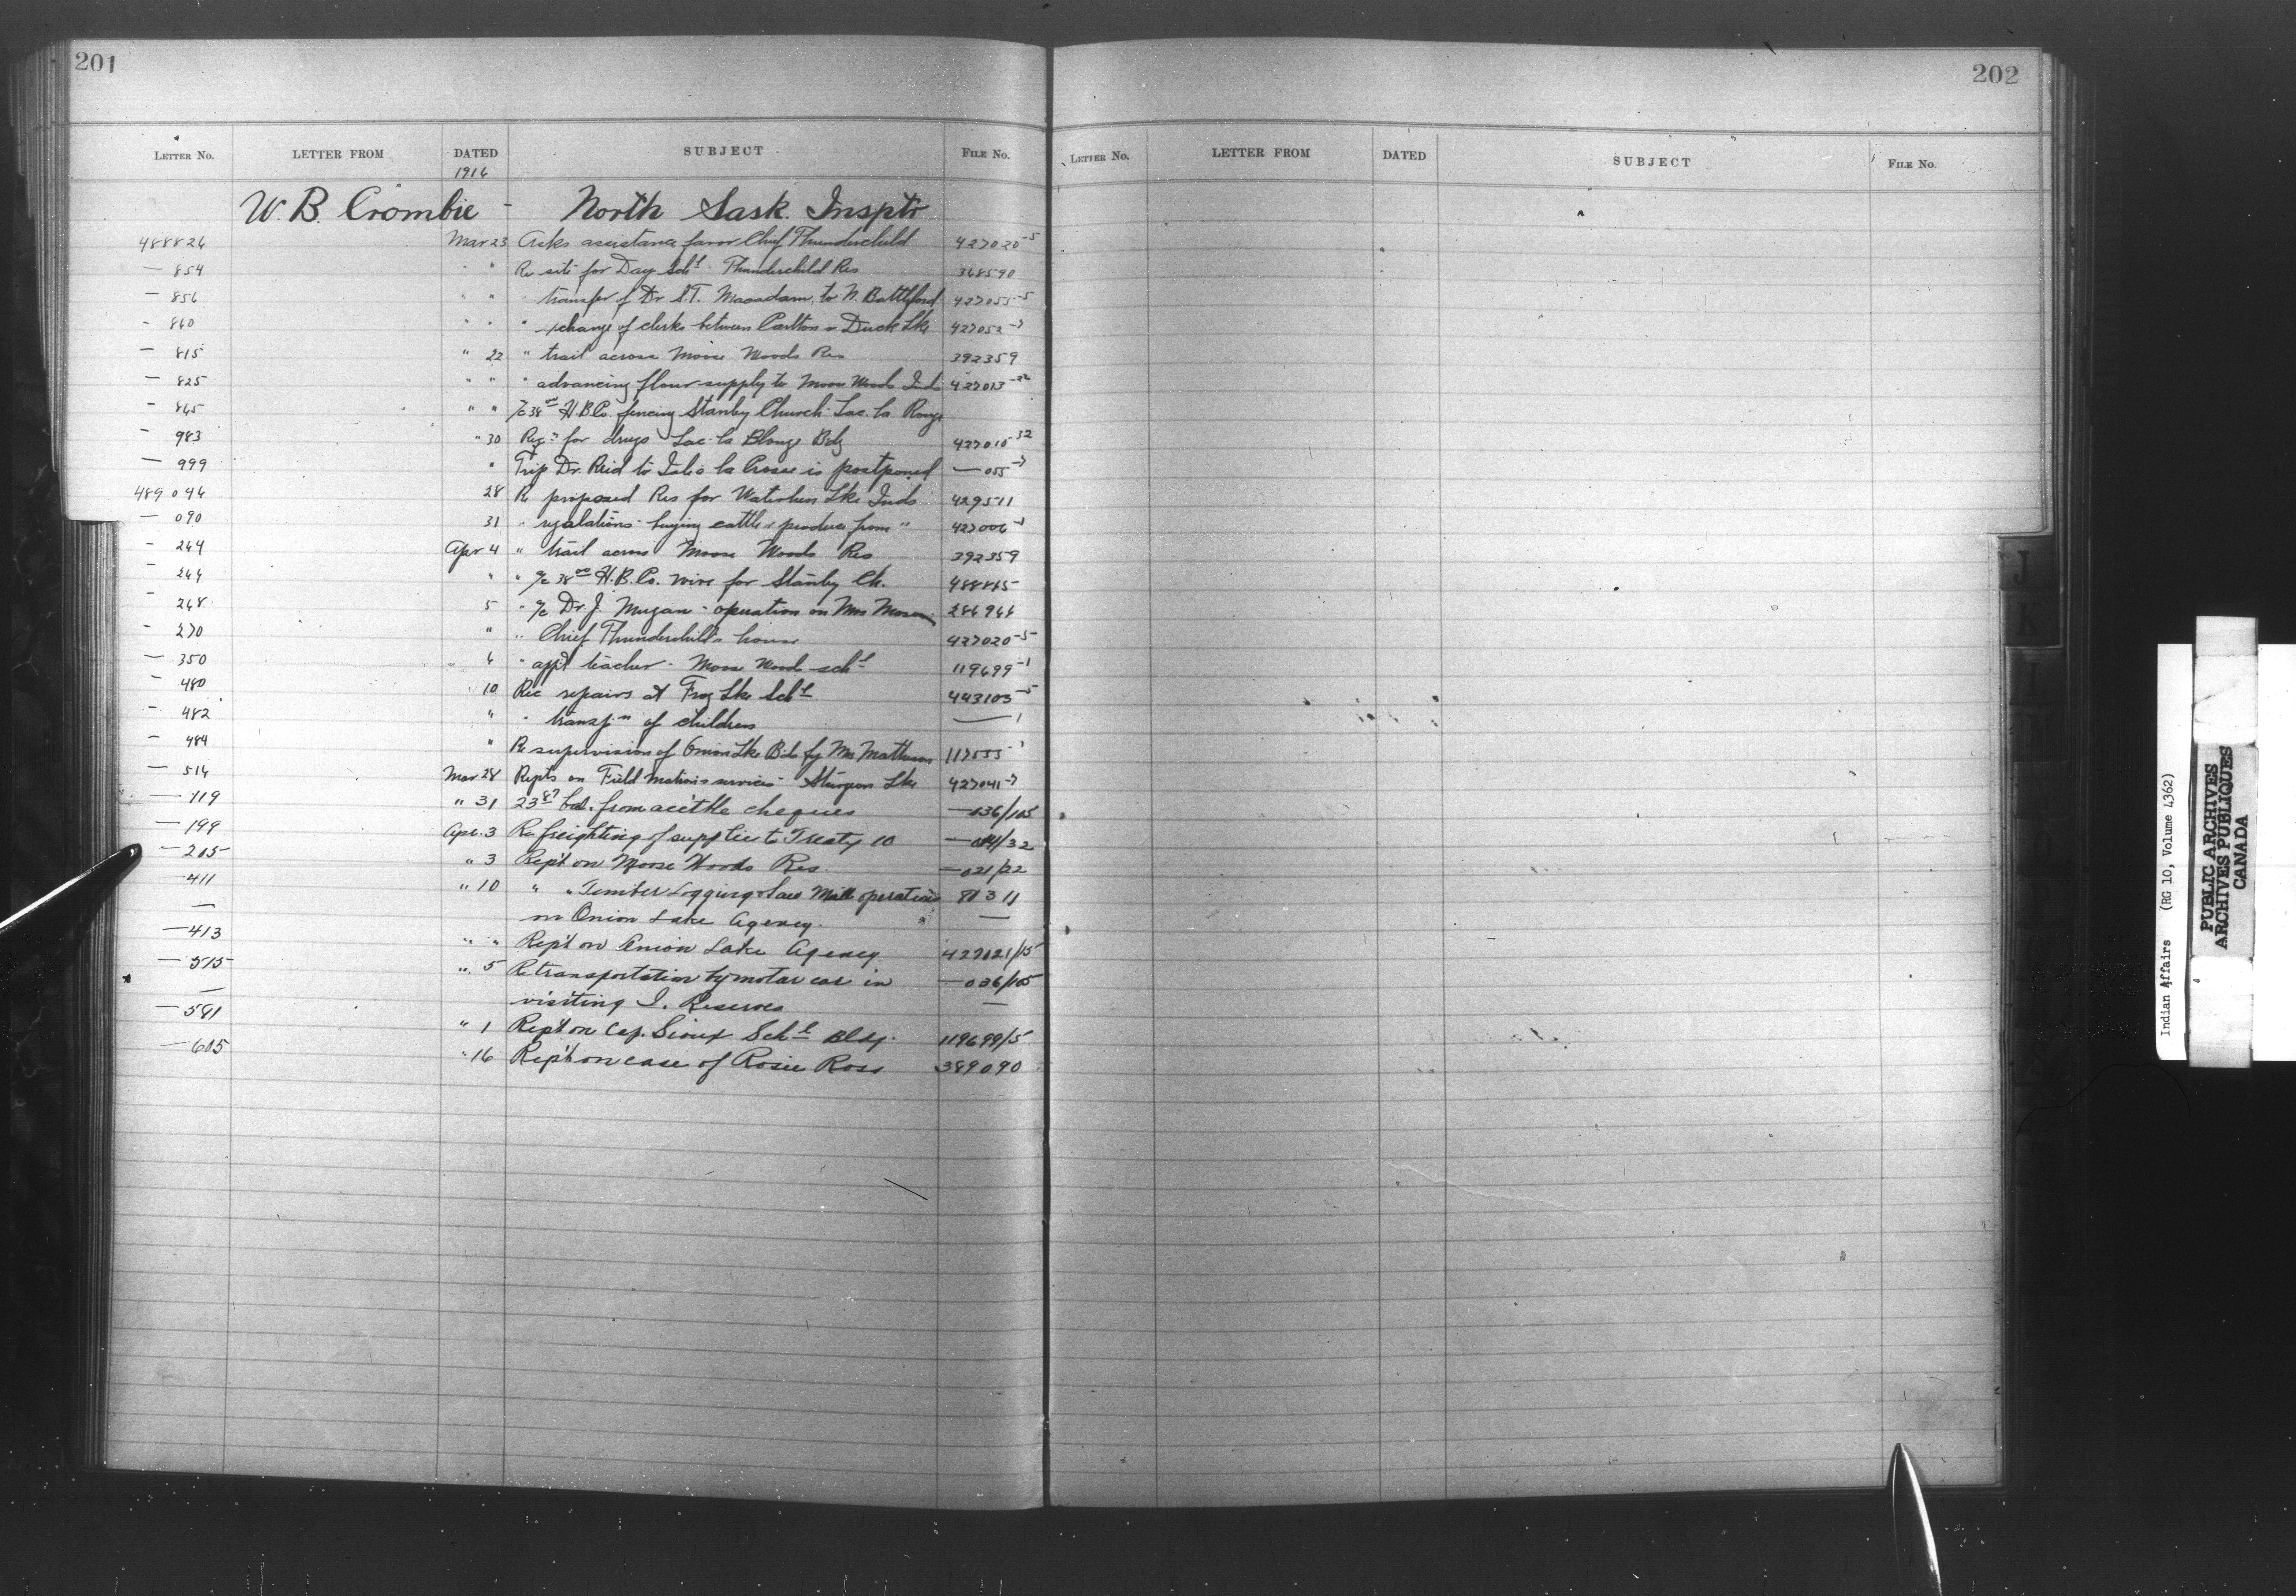 201
LETTER NO. LETTER FROM DATED SUBJECT FILE NO.
1916
W. B. Crombie - North Sask. Insptr
488826 Mar 23 Asks assistance favor Chief Thunderchild 427020-5
— 854 " " Re site for Day Schl. Thunderchild Res 368590
— 856 " " " transfer of Dr S.T. Macadam to N. Battleford 427055-5
- 860 " " " xchange of clerks between Carlton & Duck Lke 427052-7
— 815 " 22 " trail across Moose Woods Res 392359
— 825 " " " advancing flour supply to Moose Woods Inds 427013-22
- 865 " " H.B.Co. fencing Stanley Church Lac la Ronge
- 983 " 30 for drugs Lac la Ronge Bdg 427010-32
— 999 " Trip Dr. Reid to Isle a la Crosse is postponed — 055-7
489096 28 Re proposed Res for Waterhen Lke Inds 429511
— 090 31 " regulations - buying cattle & produce from " 427006-1
- 264 Apr 4 " trail across Moose Woods Res 392359
- 266 " " a/c 38 H.B.Co. wire for Stanley Ch. 488865
- 268 5 " a/c Dr. J. - operation on Mrs 286966
- 270 " " Chief Thunderchild's house 427020-5
— 350 6 " appt teacher - Moose Woods schl 119699-1
- 480 10 Rec repairs at Frog Lke Schl 443103-5
- 482 " " transpn of children — 1
- 484 " Re supervision of Onion Lke B.S. by Mrs Matheson 117555-1
- 514 Mar 28 Repts on Field Matrons services - Sturgeon Lke 427041-7
— 119 " 31 23 87 bal. from cheques — 036/105
— 199 Apr. 3 Re freighting of supplies to Treaty 10 — 014/32
— 205 " 3 Rep't on Moose Woods Res. — 021/22
— 411 " 10 " " Timber Logging & Saw Mill operations 81311
— on Onion Lake Agency. —
— 413 " " Rep't on Onion Lake Agency 427021/15
— 515 " 5 Re transportation by motor car in — 036/105
— visiting I. Reserves —
— 581 " 1 Rep't on Cap. Sioux Schl Bldg. 119699/5
— 605 " 16 Rep't on case of Rosie Ross 389090
202
LETTER NO. LETTER FROM DATED SUBJECT FILE NO.
J
K
L
Indian Affairs (RG 10, Volume 4362)
PUBLIC ARCHIVES
ARCHIVES PUBLIQUES
CANADA